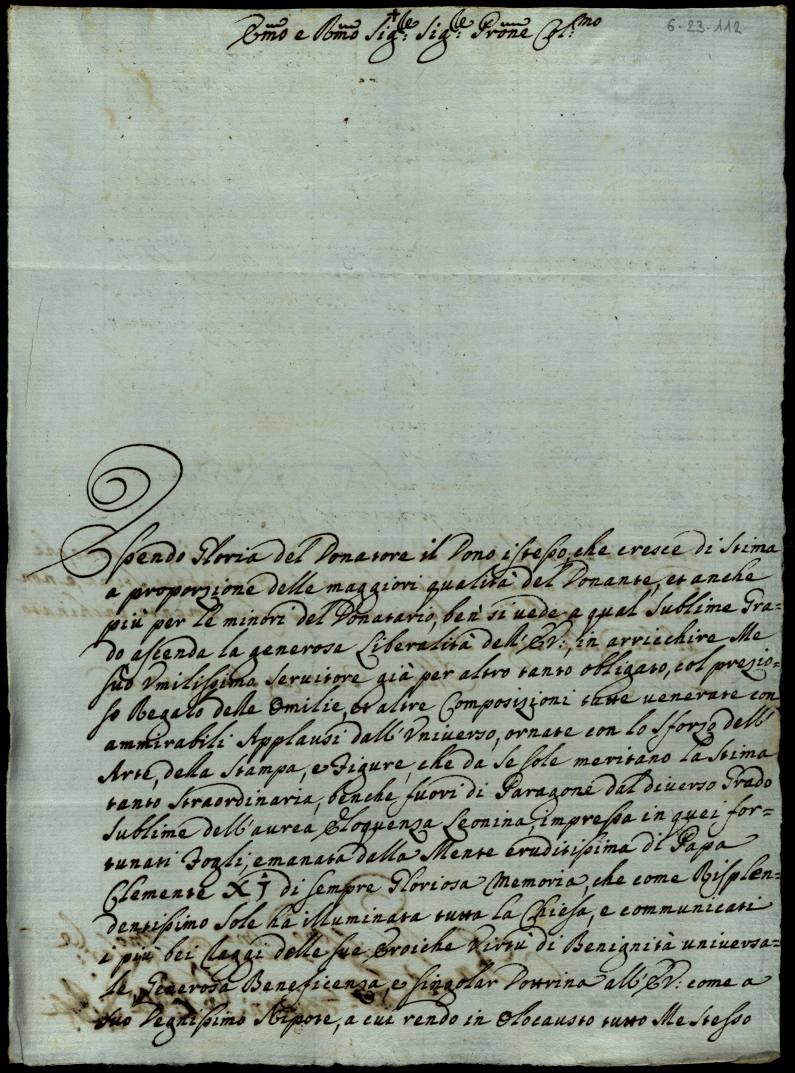 6-23-112
Emo e Rmo Sig.re Sig.re Prone Col.mo
Essendo Gloria del Donatore il Dono istesso, che cresce di Stima
a proporzione delle maggiori qualità del Donante, et anche
più per le minori del Donatario, ben si vede a qual Sublime Gra=
do ascenda la generosa Liberalità dell' E.V., in arricchire Me
suo Umilissimo Servitore già per altro tanto obligato, col prezio=
so Regalo delle Omilie, et altre Composizioni tutte venerate con
ammirabili Applausi dall' Universo, ornate con lo sforzo dell'
Arte, della Stampa, e Figure, che da se sole meritano la Stima
tanto Straordinaria, benche fuori di Paragone dal diverso Grado
Sublime dell' aurea Eloquenza Leonina, impressa in quei for=
tunati Fogli, emanata dalla Mente eruditissima di Papa
Clemente XI di sempre Gloriosa Memoria, che come Risplen=
dentissimo Sole hà illuminata tutta la Chiesa, e communicati
i più bei Raggi delle sue Eroiche Virtù di Benignità universa=
le, Generosa Beneficenza, e singolar Dottrina all' E.V. come a
suo Degnissimo Nipote, a cui rendo in Olocausto tutto Me Stesso